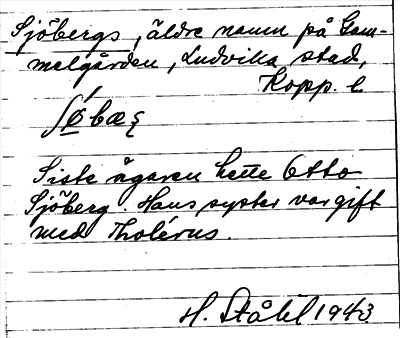 Sjöbergs, äldre namn på Gam-
melgården, Ludvika stad,
Kopp. l.
Siste ägaren hette Otto
Sjöberg. Hans syster var gift
med Tholérus.
H. Ståhl 1943.